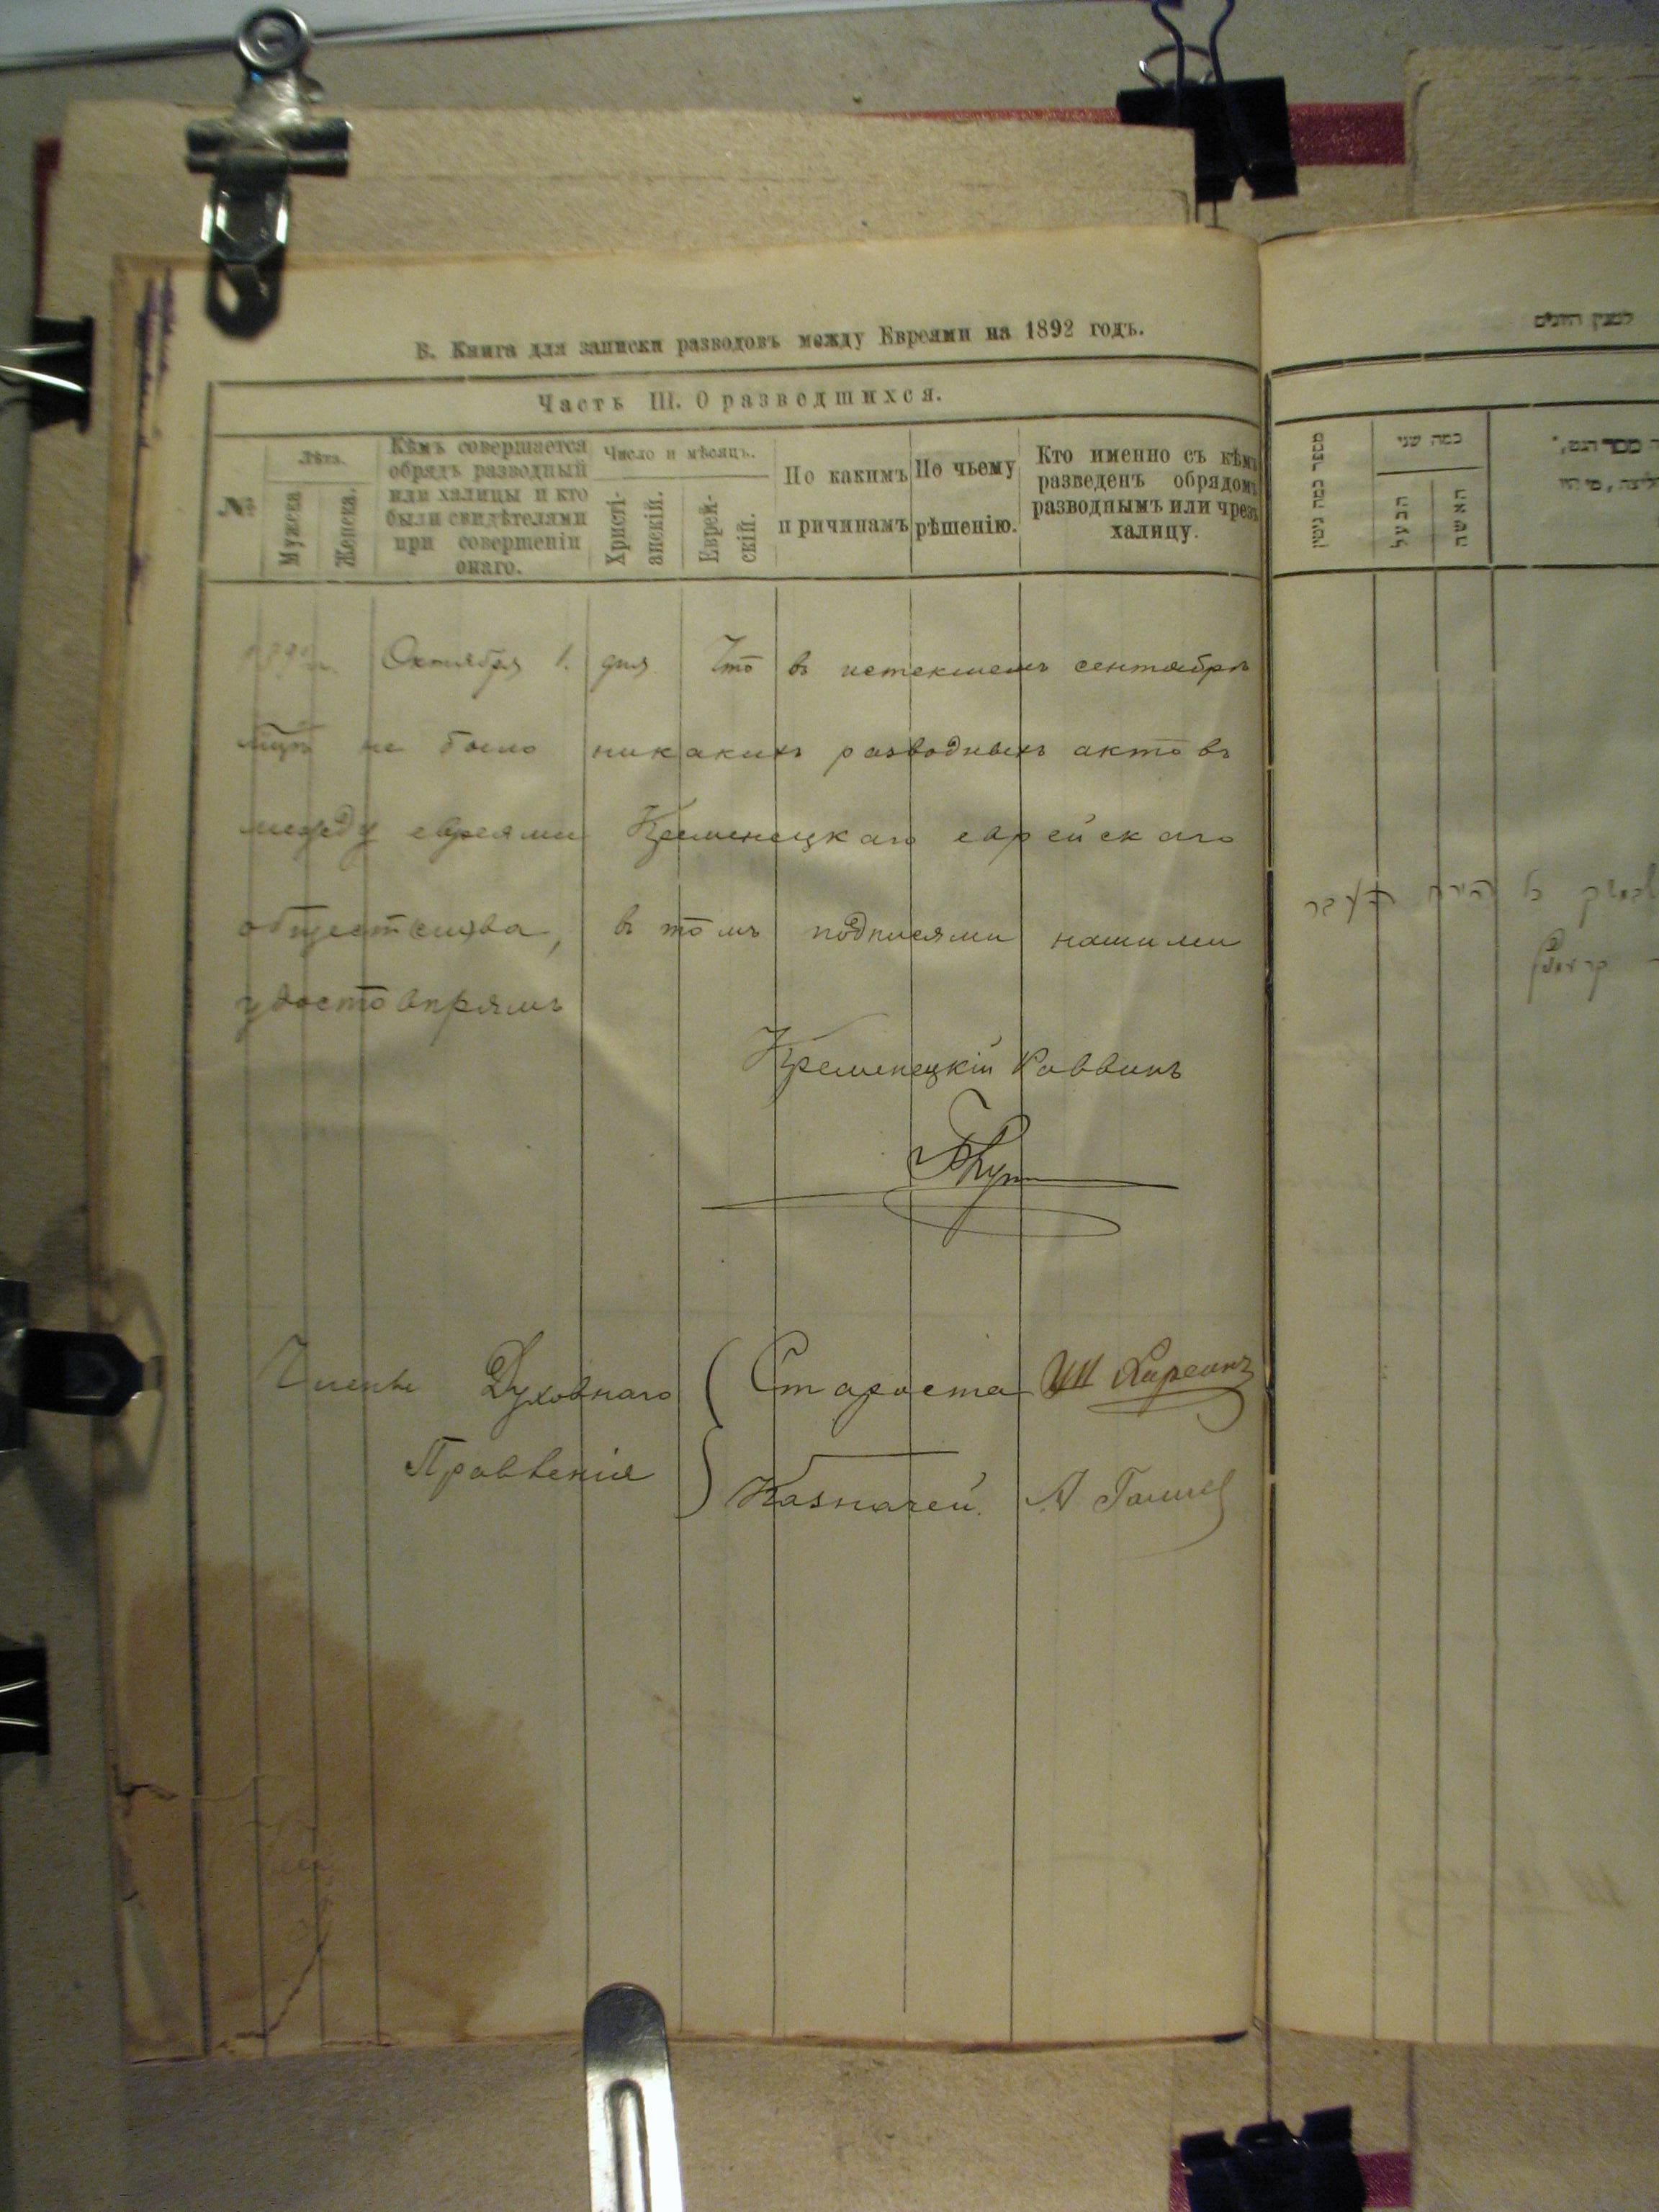 В. Книга для записки разводовъ между Евреями на 1892 годъ.
Часть III. О разведшихся.
№
Лѣта.
Мужеска
Женска.
Кѣмъ совершается
обрядъ разводный
или халицы и кто
были свидѣтелями
при совершеніи
онаго.
Число и мѣсяцъ.
Христі-
анскій.
Еврей-
скій.
По какимъ
причинамъ
По чьему
рѣшенію.
Кто именно съ кѣмъ
разведенъ обрядомъ
разводнымъ или чрезъ
халицу.
Октября 1. дня Что въ истекшемъ сентябрѣ
мцѣ не было никакихъ разводныхъ актовъ
между евреями Кременецкаго еврейскаго
общества, въ томъ подписями нашими
удостовѣряемъ
Кременецкій Раввинъ
Члены Духовнаго
Правленія
Староста
Казначей
מספר כמה גיטין
כמה שני
הבעל
האשה